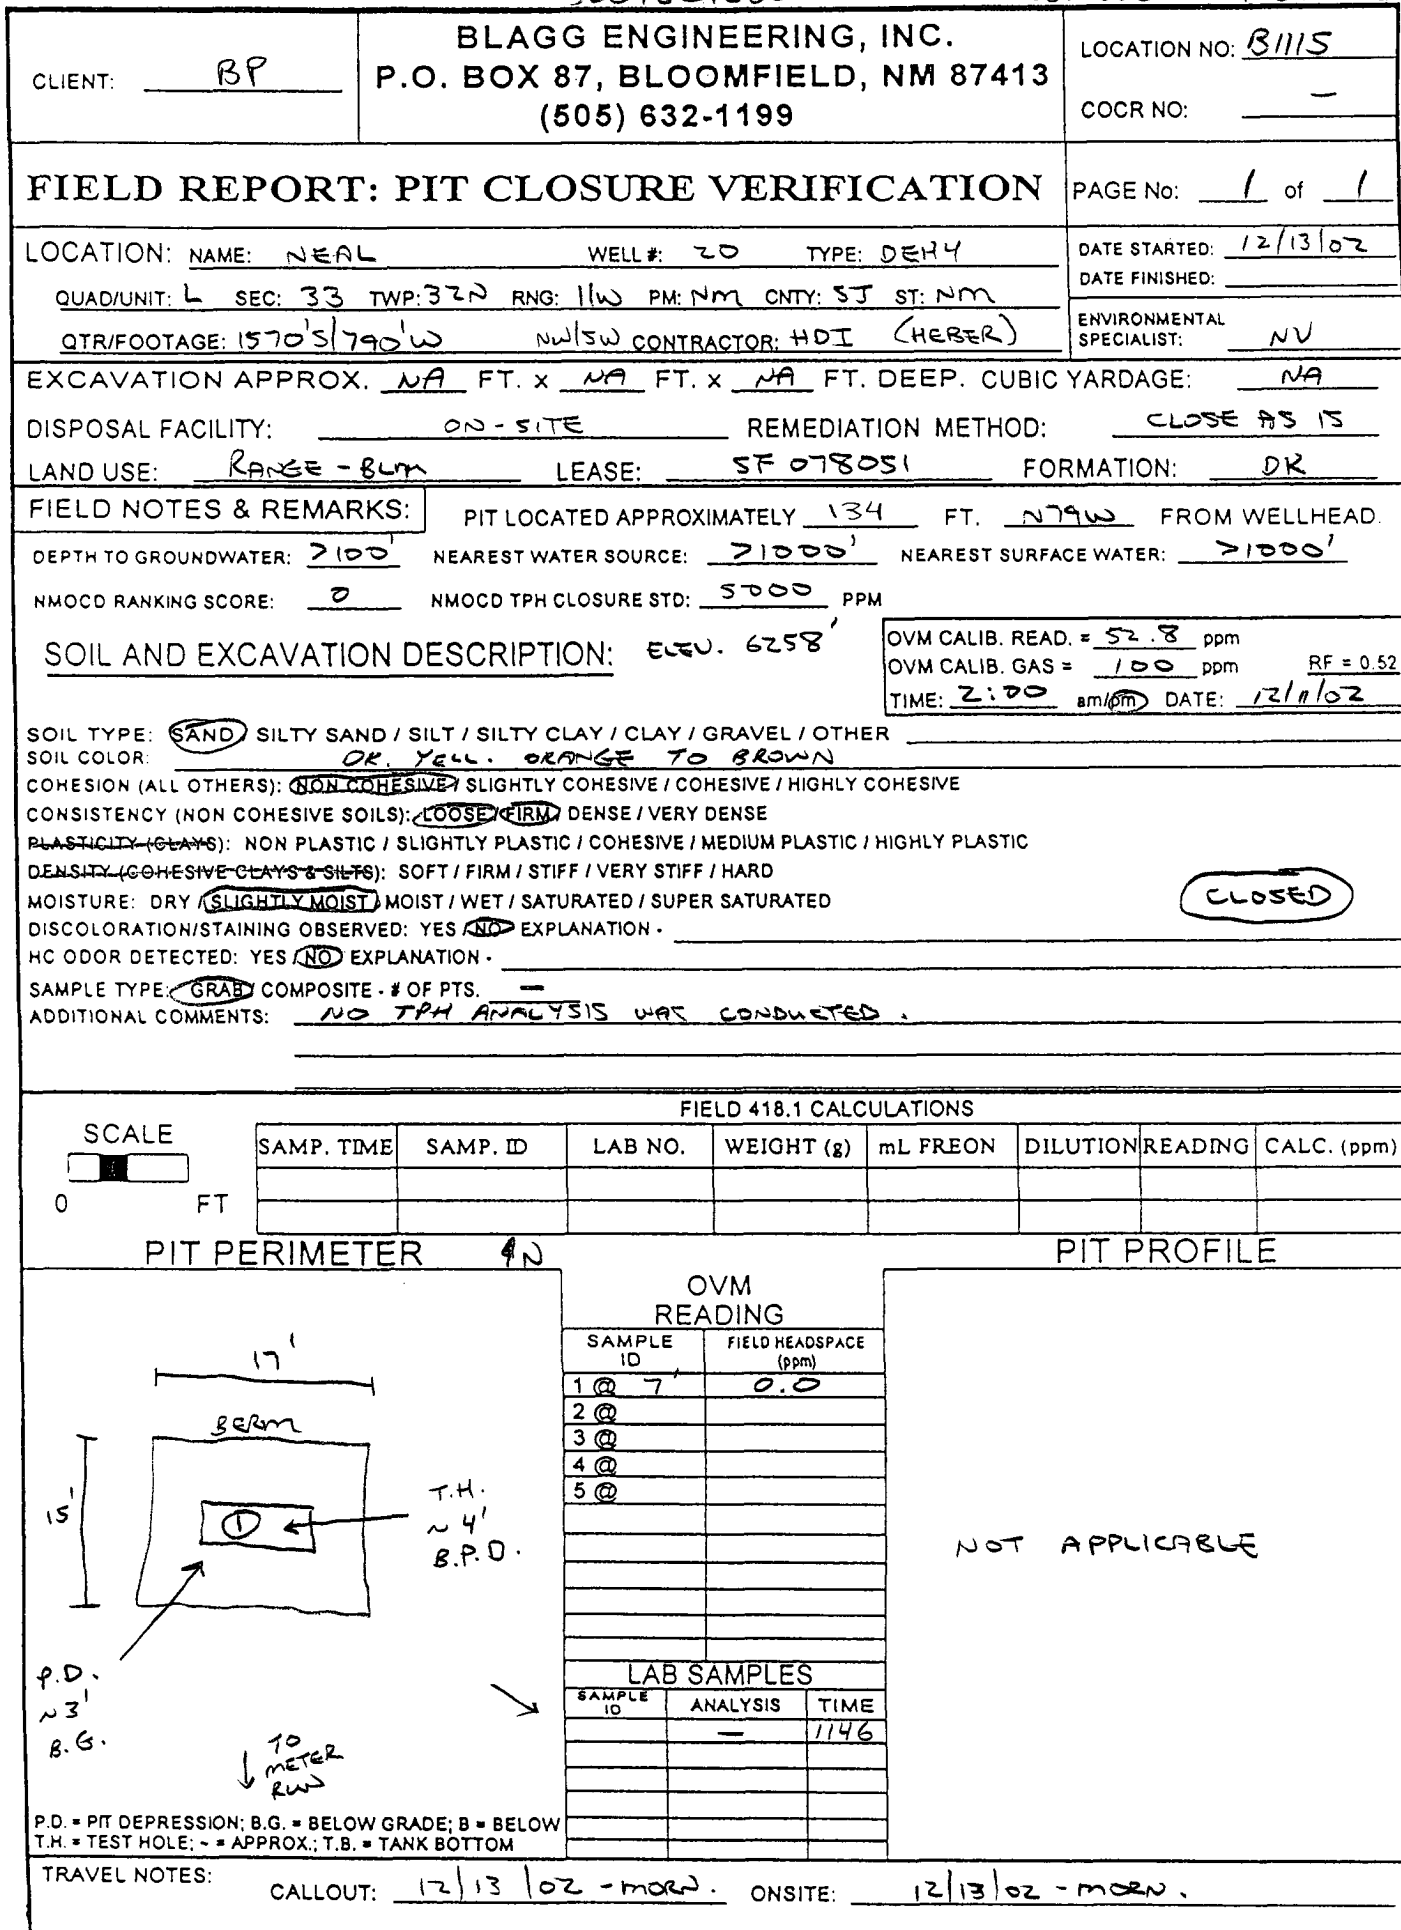 CLIENT: BP
BLAGG ENGINEERING, INC.
P.O. BOX 87, BLOOMFIELD, NM 87413
(505) 632-1199
LOCATION NO: B1115
COCR NO: —
FIELD REPORT: PIT CLOSURE VERIFICATION
PAGE No: 1 of 1
LOCATION: NAME: NEAL WELL #: 20 TYPE: DEHY
QUAD/UNIT: L SEC: 33 TWP: 32N RNG: 11W PM: NM CNTY: SJ ST: NM
QTR/FOOTAGE: 1570'S/790'W NW/SW CONTRACTOR: HDI (HEBER)
DATE STARTED: 12/13/02
DATE FINISHED:
ENVIRONMENTAL
SPECIALIST: NV
EXCAVATION APPROX. NA FT. x NA FT. x NA FT. DEEP. CUBIC YARDAGE: NA
DISPOSAL FACILITY: ON-SITE REMEDIATION METHOD: CLOSE AS IS
LAND USE: RANGE - BLM LEASE: SF 078051 FORMATION: DK
FIELD NOTES & REMARKS: PIT LOCATED APPROXIMATELY 134 FT. N79W FROM WELLHEAD.
DEPTH TO GROUNDWATER: >100' NEAREST WATER SOURCE: >1000' NEAREST SURFACE WATER: >1000'
NMOCD RANKING SCORE: 0 NMOCD TPH CLOSURE STD: 5000 PPM
SOIL AND EXCAVATION DESCRIPTION: ELEV. 6258'
OVM CALIB. READ. = 52.8 ppm
OVM CALIB. GAS = 100 ppm RF = 0.52
TIME: 2:00 am/pm DATE: 12/11/02
SOIL TYPE: SAND / SILTY SAND / SILT / SILTY CLAY / CLAY / GRAVEL / OTHER
SOIL COLOR: DK. YELL. ORANGE TO BROWN
COHESION (ALL OTHERS): NON COHESIVE / SLIGHTLY COHESIVE / COHESIVE / HIGHLY COHESIVE
CONSISTENCY (NON COHESIVE SOILS): LOOSE / FIRM / DENSE / VERY DENSE
PLASTICITY (CLAYS): NON PLASTIC / SLIGHTLY PLASTIC / COHESIVE / MEDIUM PLASTIC / HIGHLY PLASTIC
DENSITY (COHESIVE CLAYS & SILTS): SOFT / FIRM / STIFF / VERY STIFF / HARD
MOISTURE: DRY / SLIGHTLY MOIST / MOIST / WET / SATURATED / SUPER SATURATED
CLOSED
DISCOLORATION/STAINING OBSERVED: YES / NO EXPLANATION -
HC ODOR DETECTED: YES / NO EXPLANATION -
SAMPLE TYPE: GRAB / COMPOSITE - # OF PTS. —
ADDITIONAL COMMENTS: NO TPH ANALYSIS WAS CONDUCTED.
FIELD 418.1 CALCULATIONS
SCALE
0 FT
SAMP. TIME SAMP. ID LAB NO. WEIGHT (g) mL FREON DILUTION READING CALC. (ppm)
PIT PERIMETER N
PIT PROFILE
OVM
READING
SAMPLE ID FIELD HEADSPACE (ppm)
1 @ 7' 0.0
2 @
3 @
4 @
5 @
17'
BERM
15'
1
T.H.
~ 4'
B.P.D.
P.D.
~ 3'
B.G.
TO
METER
RUN
NOT APPLICABLE
LAB SAMPLES
SAMPLE ID ANALYSIS TIME
— 1146
P.D. = PIT DEPRESSION; B.G. = BELOW GRADE; B = BELOW
T.H. = TEST HOLE; ~ = APPROX.; T.B. = TANK BOTTOM
TRAVEL NOTES:
CALLOUT: 12/13/02 - MORN. ONSITE: 12/13/02 - MORN.